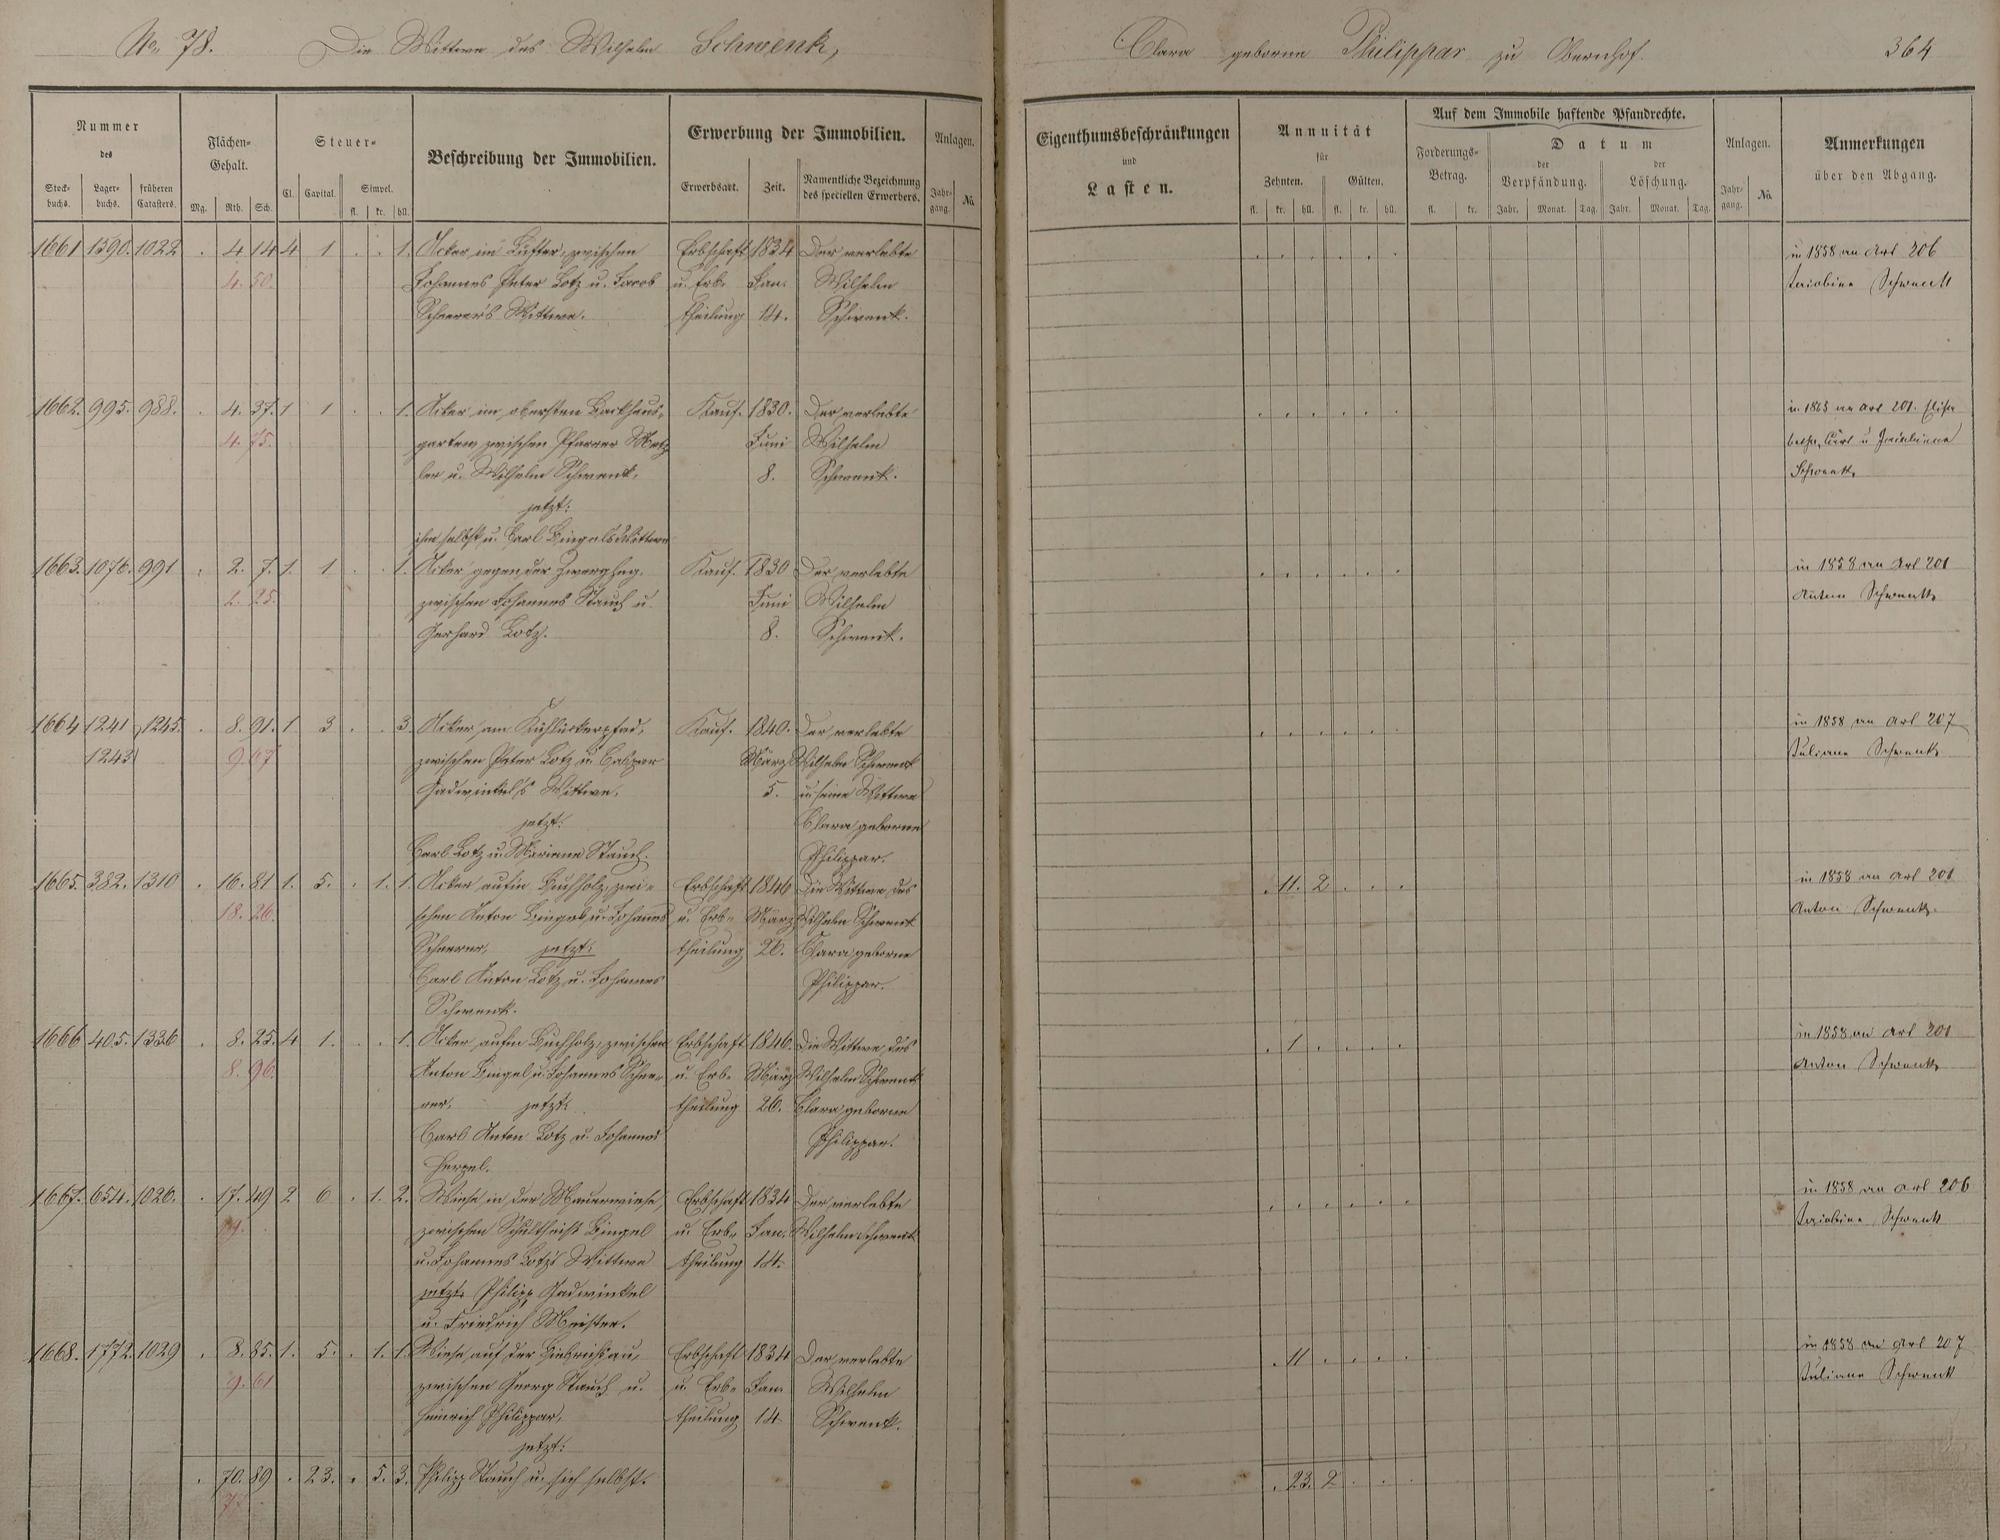 No. 78. Die Wittwe des Wilhelm Schwenk,
Clara geborne Philippar zu Obernhof. 364
Nummer des
Stock-buchs. Lager-buchs. früheren Catasters.
Flächen-Gehalt.
Mg. Rth. Sch.
Steuer-
Cl. Capital. Simpel. fl. kr. hll.
Beschreibung der Immobilien.
Erwerbung der Immobilien.
Erwerbsart. Zeit. Namentliche Bezeichnung des speciellen Erwerbers.
Anlagen.
Jahr-gang. No.
Eigenthumsbeschränkungen und Lasten.
Annuität für
Zehnten. Gülten.
fl. kr. hll. fl. kr. hll.
Auf dem Immobile haftende Pfandrechte.
Forderungs-Betrag. fl. kr.
Datum
der Verpfändung. der Löschung.
Jahr. Monat. Tag. Jahr. Monat. Tag.
Anlagen.
Jahr-gang. No.
Anmerkungen über den Abgang.
1661 1590. 1022 . 4 14 4 1 . . 1. Acker im Lütter, zwischen Erbschaft 1834 Der verlebte in 1858 an Arl 206
4. 50. Johannes Peter Lotz u. Jacob u. Erb- Jan. Wilhelm Schwenk
Scheerer's Wittwe. theilung 14. Schwenk.
1662. 995. 988. . 4. 37. 1 1 . . 1. Acker im obersten Backhaus- Kauf. 1830. Der verlebte in 1863 an Arl 201. Elisa
4. 75. garten zwischen Pfarrer Metz Juni Wilhelm betha, Carl u
ler u. Wilhelm Schwenk, 8. Schwenk. Schwenk.
jetzt:
ihm selbst u. Carl Bingels Wittwe
1663. 1076. 991 . 2. 7. 1. 1 . . 1. Acker gegen der Zwerghag, Kauf. 1830 Der verlebte in 1858 an Arl 201
2. 25. zwischen Johannes Stauch u. Juni Wilhelm Anton Schwenk
Gerhard Lotz. 8. Schwenk.
1664 1241 1245. . 8. 91. 1. 3 . . 3. Acker am Kuhlückerpfad, Kauf. 1840. Der verlebte in 1858 an Arl 207
1243 9. 67 zwischen Peter Lotz u. Caspar März Wilhelm Schwenk Juliane Schwenk
Hadwinkel's Wittwe, 5. u. seine Wittwe
jetzt: Clara geborne
Carl Lotz u. Mariana Stauch. Philippar.
1665. 382. 1310 . 16. 81 1. 5. . 1. 1. Acker aufm Buchholz, zwi- Erbschaft 1846 Die Wittwe des . 11. 2 . . . in 1858 an Arl 201
18. 26. schen Anton Bingel u. Johannes u. Erb- März Wilhelm Schwenk Anton Schwenk.
Scheerer, jetzt: theilung 26. Clara geborne
Carl Anton Lotz u. Johannes Philippar.
Schwenk.
1666 405. 1336 . 8. 25. 4 1. . . 1. Acker aufm Buchholz, zwischen Erbschaft 1846. Die Wittwe des . 1 . . . . in 1858 an Arl 201
8. 96. Anton Bingel u. Johannes Schee- u. Erb- März Wilhelm Schwenk Anton Schwenk
rer, jetzt: theilung 26. Clara geborne
Carl Anton Lotz u. Johannes Philippar.
Herzel.
1667. 654. 1026. . 17. 49 2 6 . 1. 2. Wiese in der Mauerwiese, Erbschaft 1834 Der verlebte in 1858 an Arl 206
19. zwischen Schultheiß Bingel u. Erb- Jan. Wilhelm Schwenk Schwenk
u. Johannes Lotz's Wittwe theilung 14.
jetzt: Philipp Hadwinkel
u. Friedrich Meister.
1668. 1772. 1029 . 8. 85. 1. 5. . 1. 1. Wiese auf der Liebrichsau, Erbschaft 1834 Der verlebte . 11 . . . . in 1858 an Arl 207
9. 61 zwischen Georg Stauch u. u. Erb- Jan. Wilhelm Juliane Schwenk
Heinrich Philippar, theilung 14 Schwenk.
jetzt:
. 70. 89 . 23. . 5. 3. Philipp Stauch u. sich selbst. . 23. 2 . . .
77